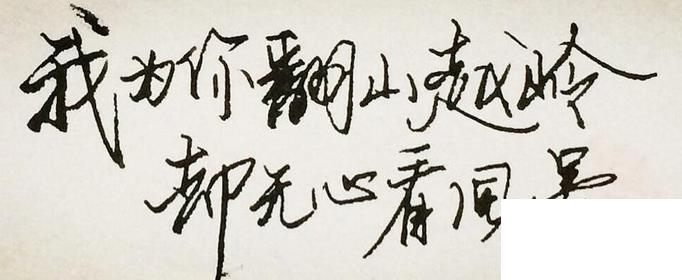 我为你翻山越岭
却无心看风